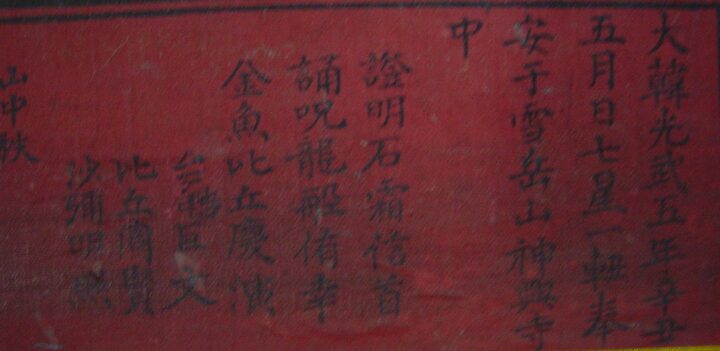 大韓光武五年辛丑
五月日七星一軸奉
安于雪岳山神興寺
中
證明石霜信首
誦呪龍船侑幸
金魚比丘慶演
文
比丘尚賢
沙彌明照
山中秩